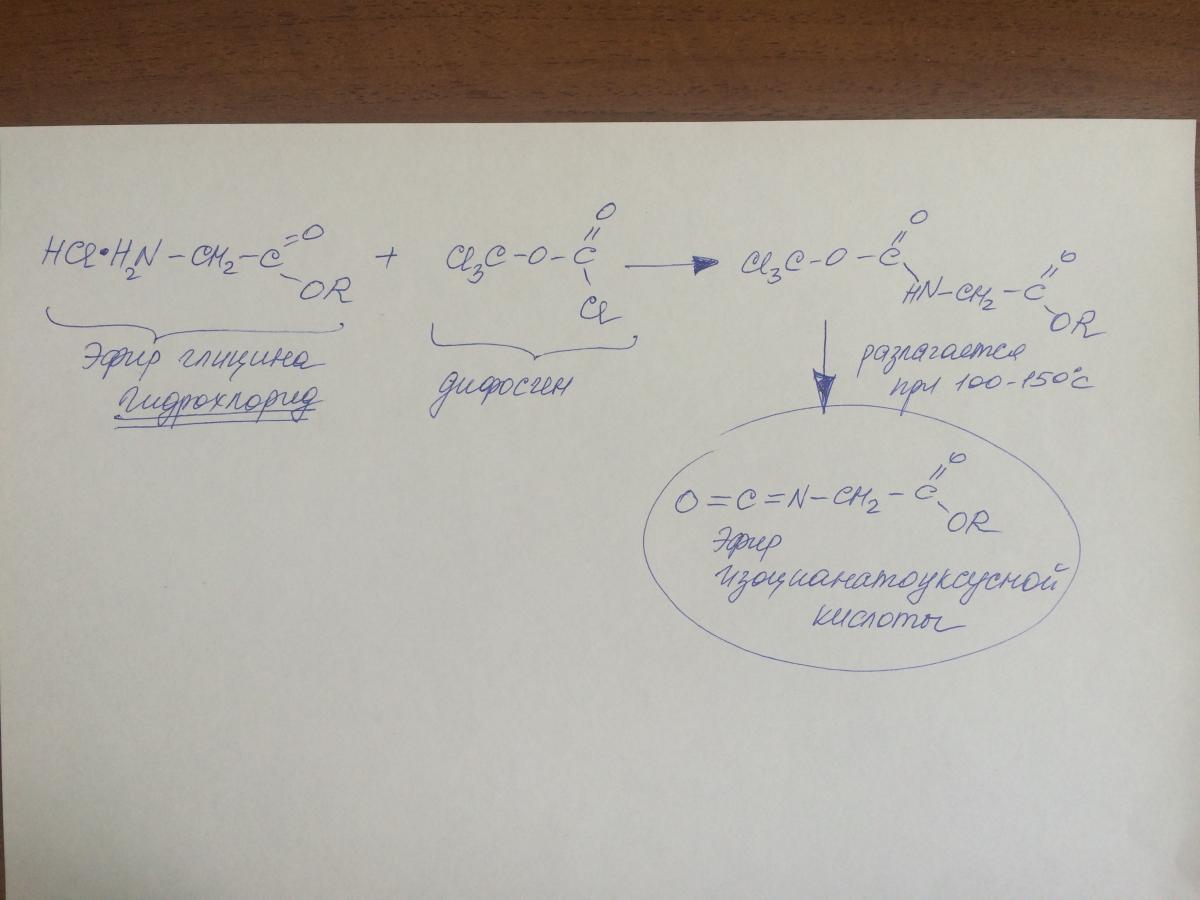 HCl•H₂N–CH₂–C(=O)–OR + Cl₃C–O–C(=O)–Cl → Cl₃C–O–C(=O)–HN–CH₂–C(=O)–OR
Эфир глицина
Гидрохлорид
дифосген
разлагается
при 100-150°C
O=C=N–CH₂–C(=O)–OR
Эфир
изоцианатоуксусной
кислоты